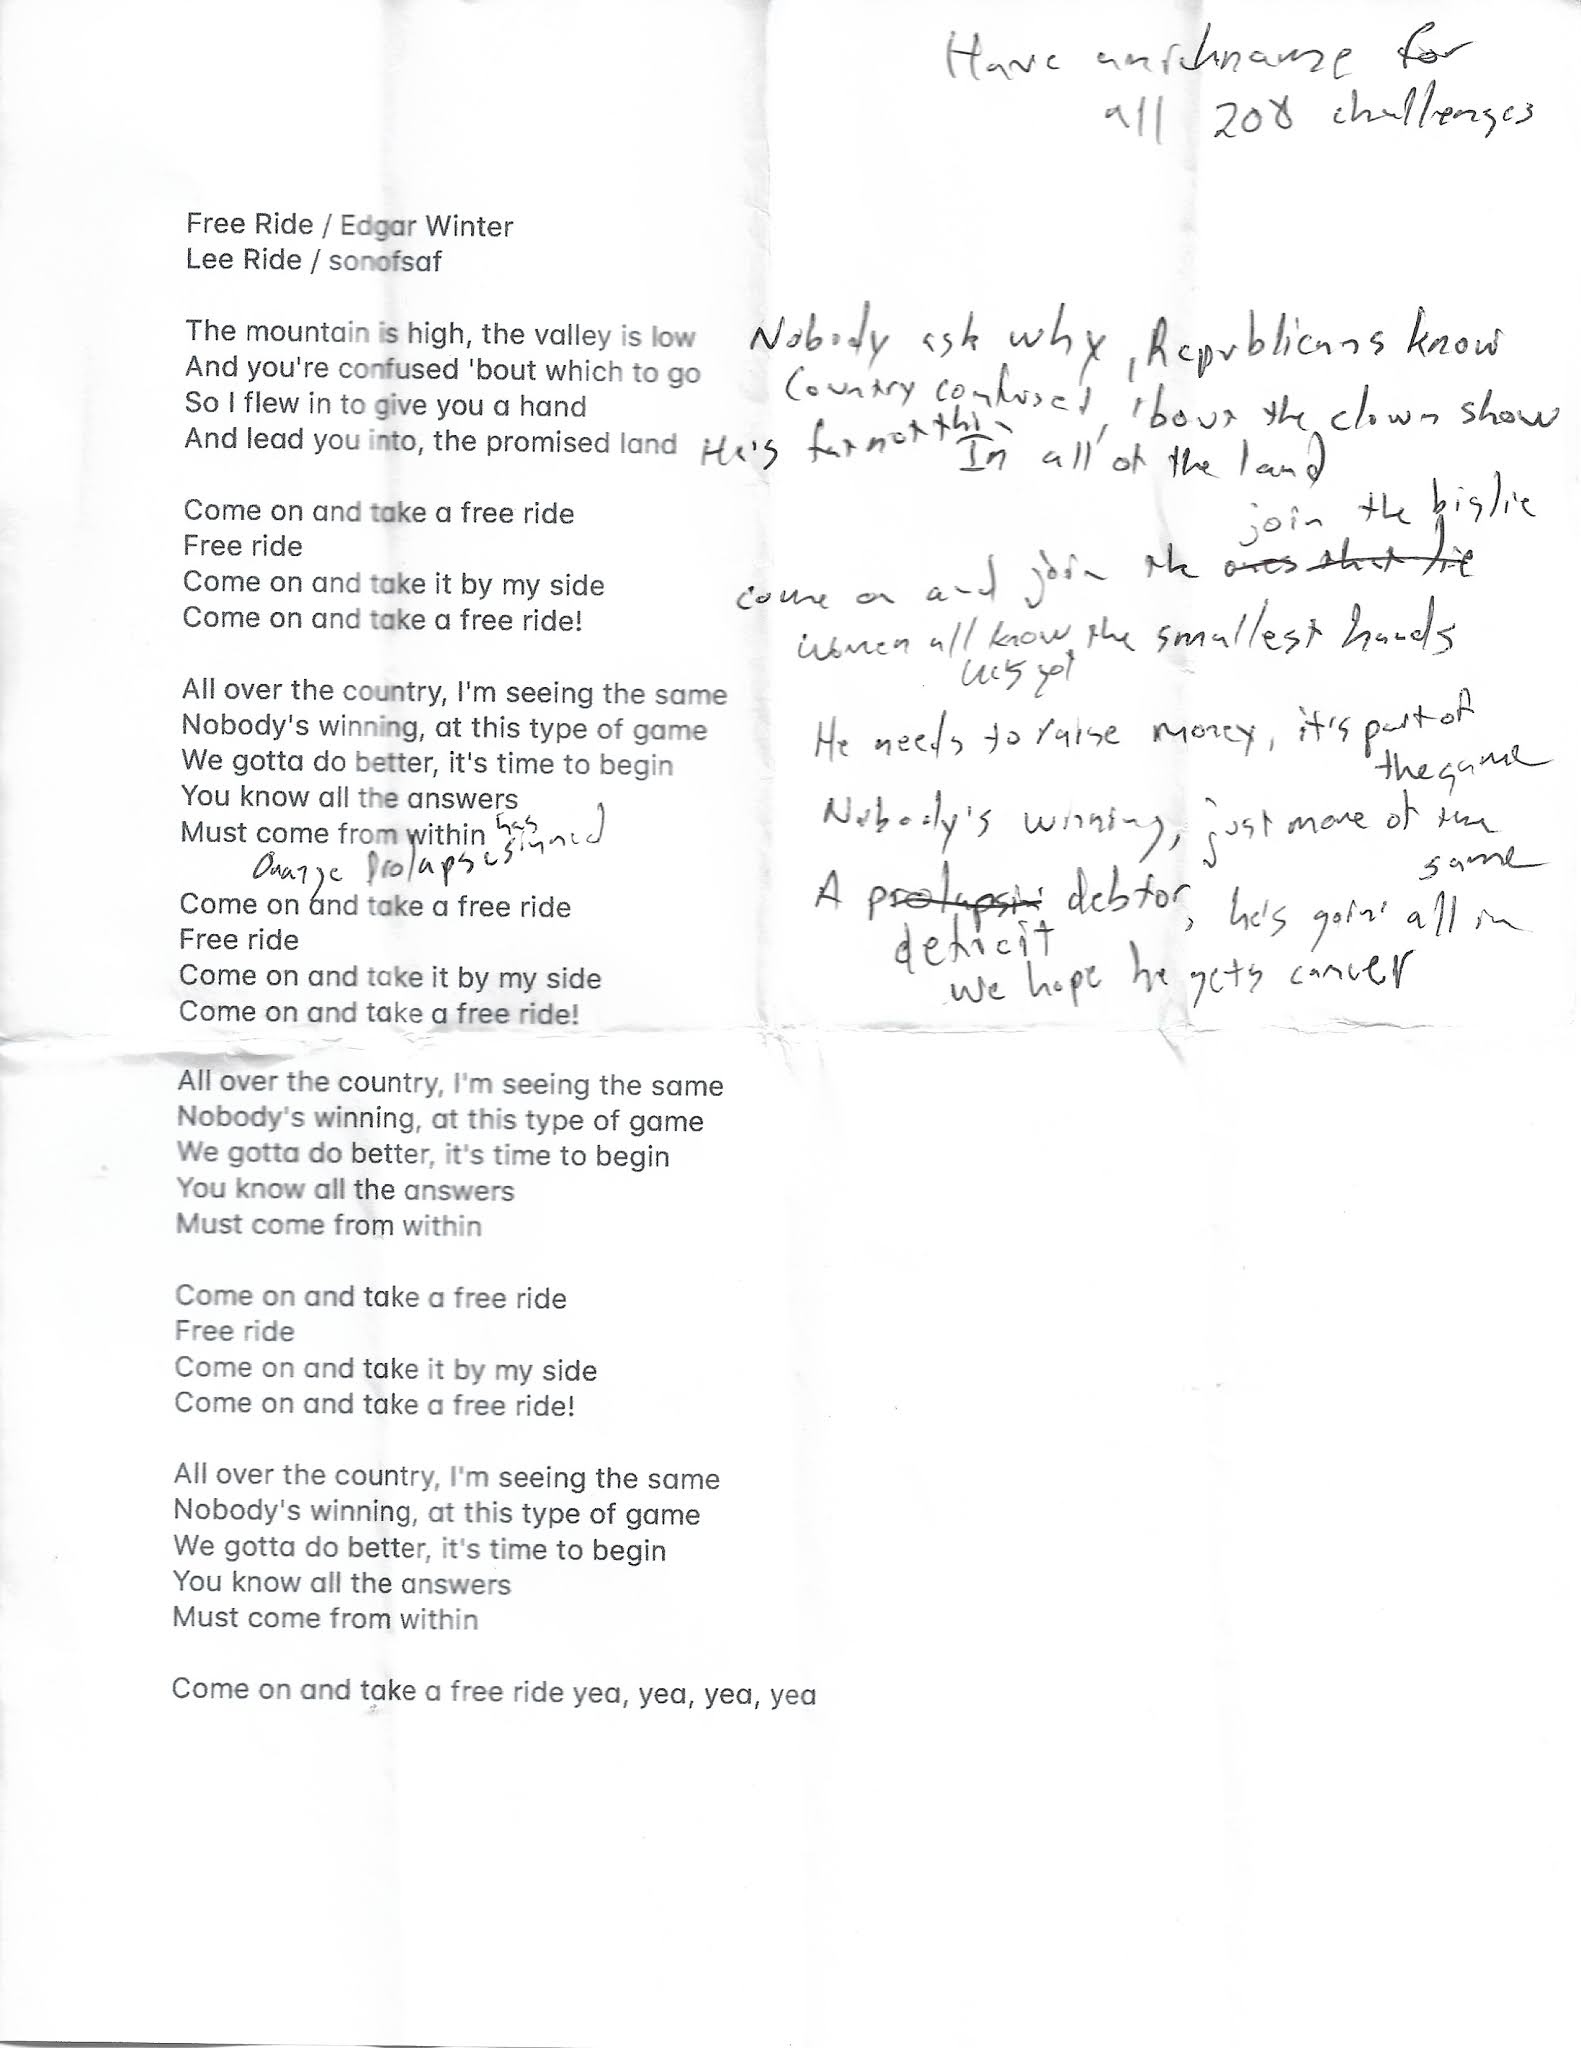 Have for
all 208 challenges
Free Ride / Edgar Winter
Lee Ride / sonofsaf
The mountain is high, the valley is low
And you're confused 'bout which to go
So I flew in to give you a hand
And lead you into, the promised land
Nobody ask why, Republicans know
Country confused, 'bout the clown show
He's fat not thin
In all of the land
Come on and take a free ride
Free ride
Come on and take it by my side
Come on and take a free ride!
join the big lie
come on and join the ones that lie
women all know, the smallest hands
All over the country, I'm seeing the same
Nobody's winning, at this type of game
We gotta do better, it's time to begin
You know all the answers
Must come from within
has
Orange Prolapse signed
He needs to raise money, it's part of
the game
Nobody's winning, just more of the
same
A prolapsin debtor, he's goin' all in
deficit
we hope he gets cancer
Come on and take a free ride
Free ride
Come on and take it by my side
Come on and take a free ride!
All over the country, I'm seeing the same
Nobody's winning, at this type of game
We gotta do better, it's time to begin
You know all the answers
Must come from within
Come on and take a free ride
Free ride
Come on and take it by my side
Come on and take a free ride!
All over the country, I'm seeing the same
Nobody's winning, at this type of game
We gotta do better, it's time to begin
You know all the answers
Must come from within
Come on and take a free ride yea, yea, yea, yea